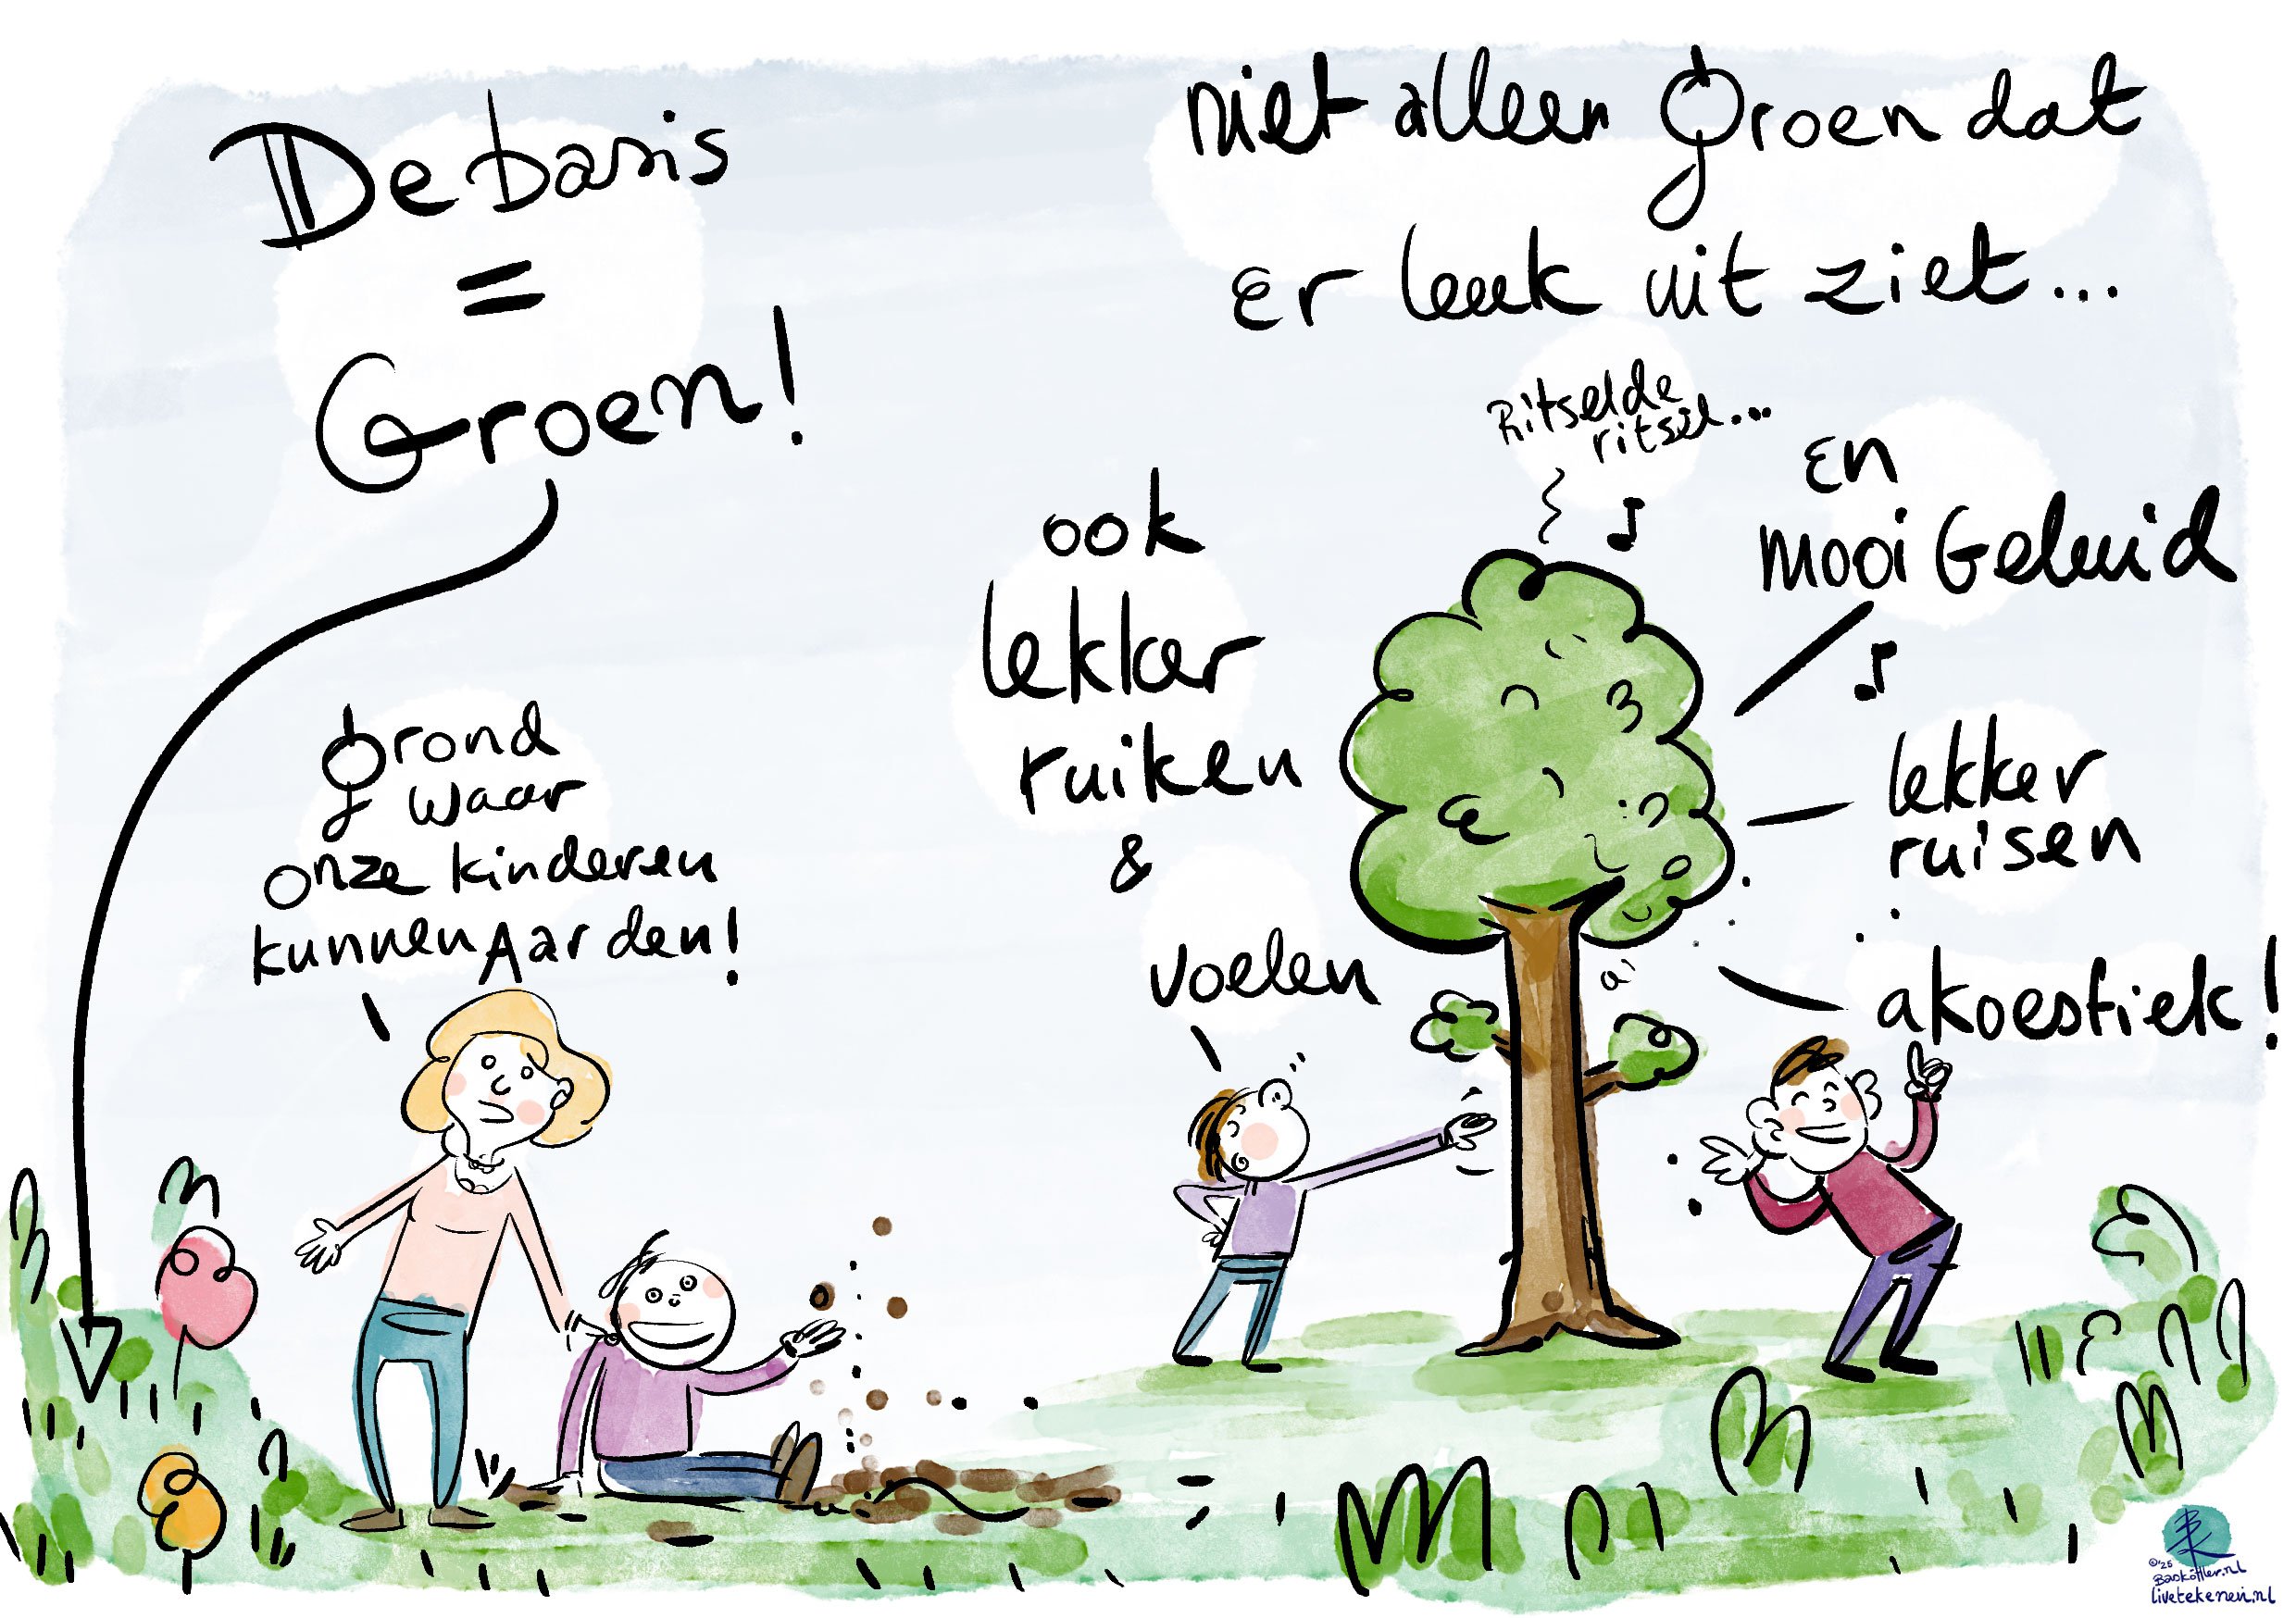 De basis
=
Groen!
Grond
waar
onze kinderen
kunnen Aarden!
niet alleen Groen dat
er leuk uit ziet...
Ritselde
ritsel...
ook
lekker
ruiken
&
voelen
En
mooi Geluid
lekker
ruisen
akoestiek!
©'25
Basköhler.nl
livetekenen.nl